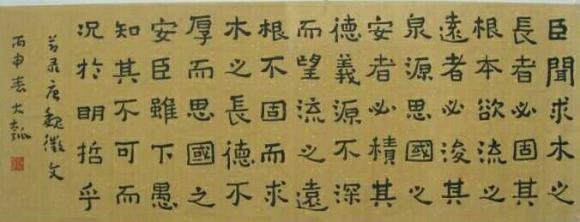 臣聞求木之
長者必固其
根本欲流之
遠者必浚其
泉源思國之
安者必積其
德義源不深
而望流之遠
根不固而求
木之長德不
厚而思國之
安臣雖下愚
知其不可而
況於明哲乎
节录唐魏徵文
丙申春大